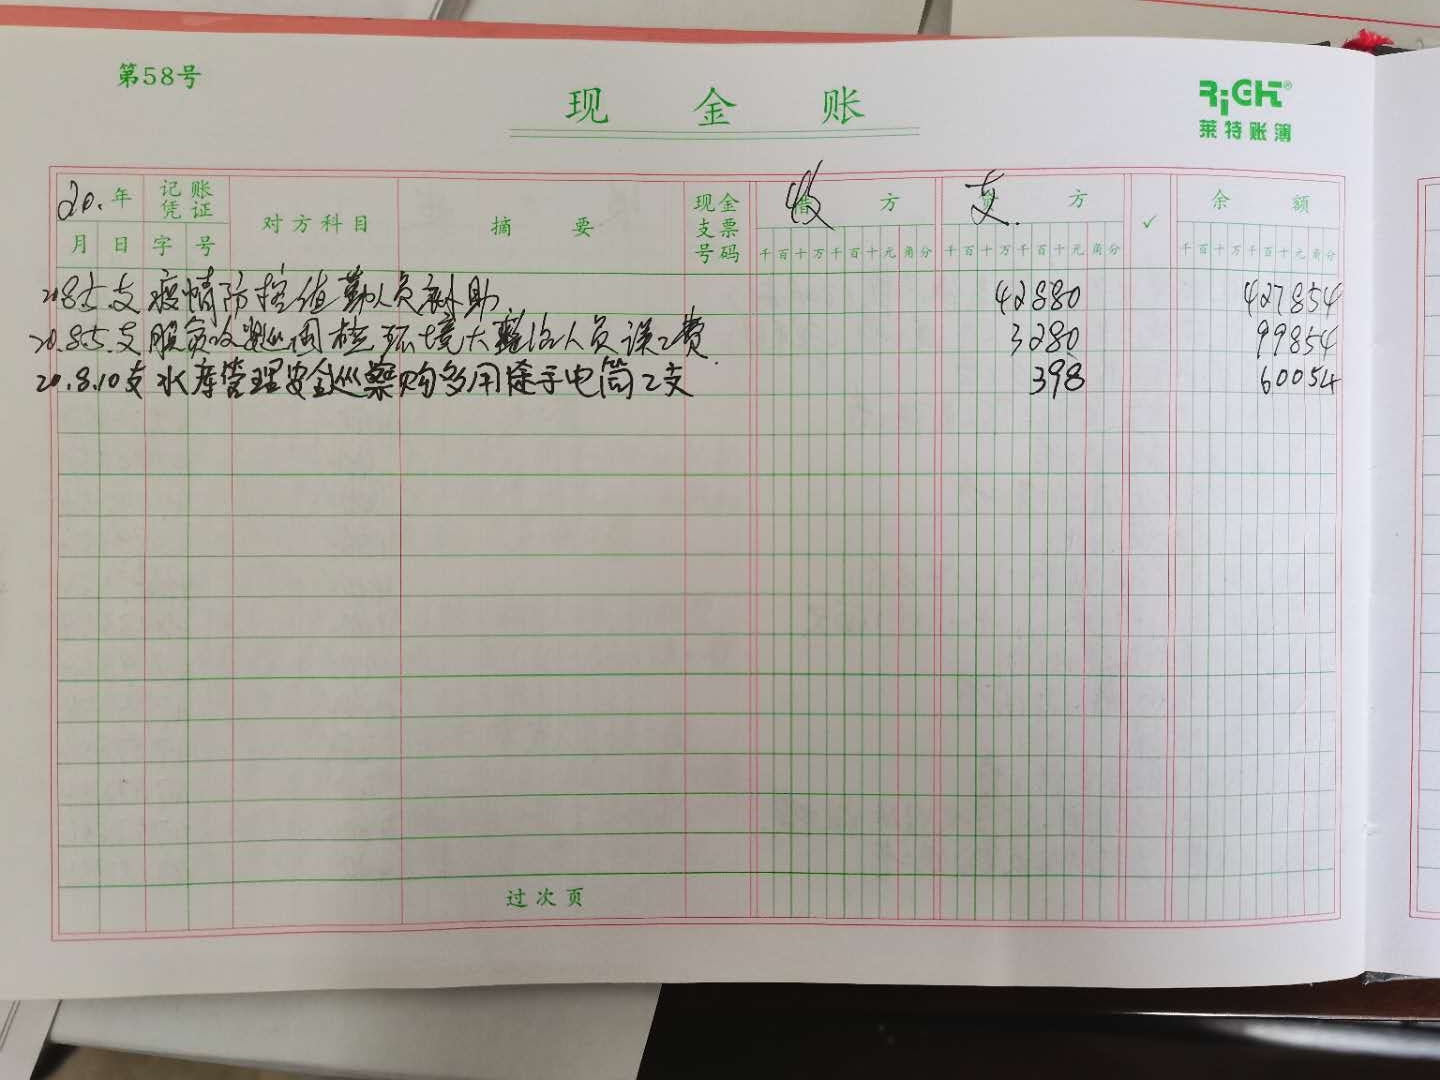 第58号
现金账
RiGHT®
莱特账簿
20.年 记账凭证 对方科目 摘要 现金支票号码 收方 支方 ✓ 余额
月 日 字 号 千百十万千百十元角分 千百十万千百十元角分 千百十万千百十元角分
20.8.5 支 疫情防控值勤人员补助 42880 427854
20.8.5. 支 环境大整治人员误工费 3280 99854
20.8.10 支 水库管理安全巡察购多用途手电筒2支 398 60054
过次页